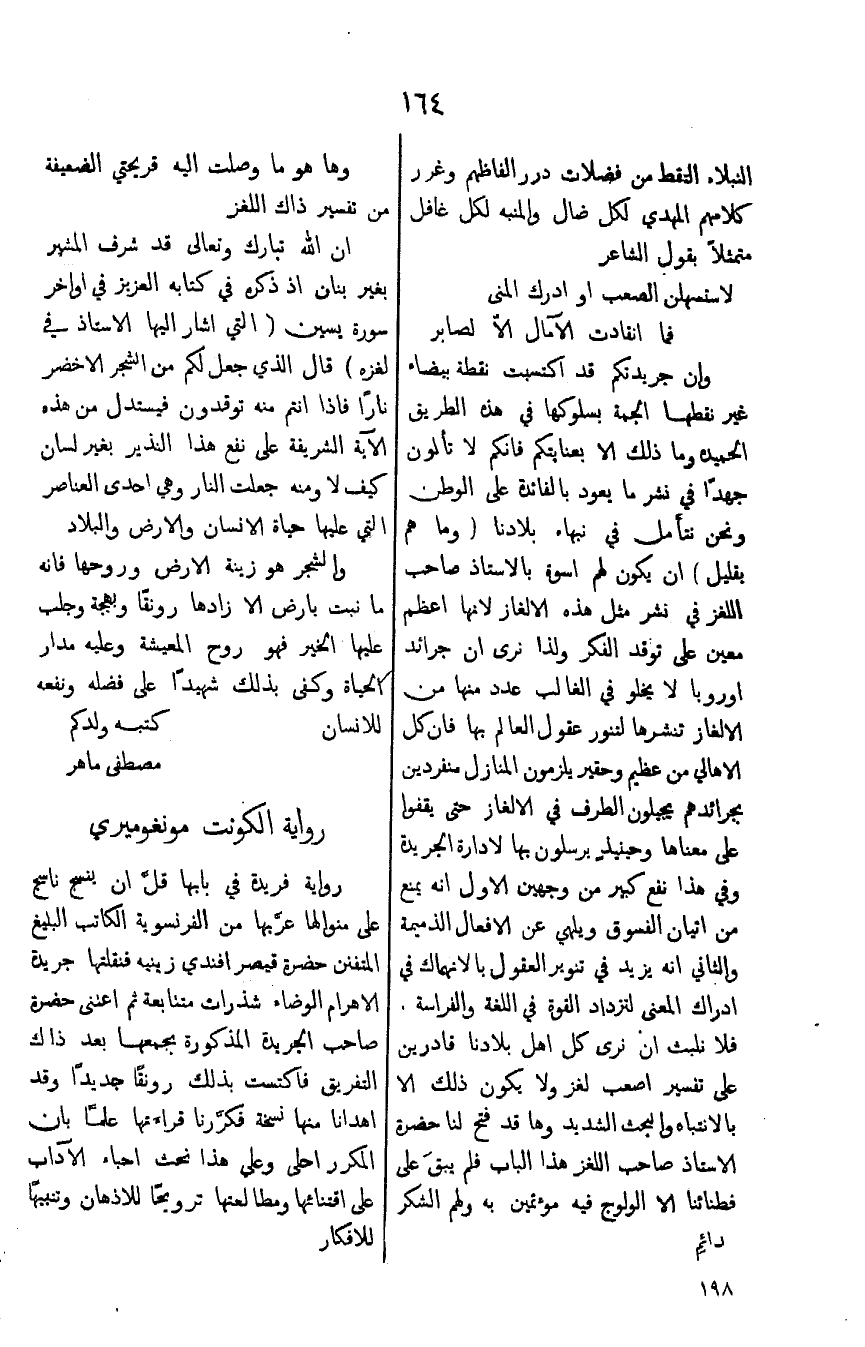 ١٦٤
النبلاء التقط من فضلات درر الفاظهم وغرر
كلامهم المهدي لكل ضال والمنبه لكل غافل
متمثلاً بقول الشاعر
لاستسهلن الصعب او ادرك المنى
فما انقادت الآمال الاّ لصابر
وان جريدتكم قد اكتسبت نقطة بيضاء
غير نقطها الجمة بسلوكها في هذه الطريق
الحميده وما ذلك الا بعنايتكم فانكم لا تألون
جهدًا في نشر ما يعود بالفائدة على الوطن
ونحن نتأمل في نبهاء بلادنا ( وما هم
بقليل ) ان يكون لهم اسوة بالاستاذ صاحب
اللغز في نشر مثل هذه الالغاز لانها اعظم
معين على توقد الفكر ولذا نرى ان جرائد
اوروبا لا يخلو في الغالب عدد منها من
الالغاز تنشرها لتنور عقول العالم بها فان كل
الاهالي من عظيم وحقير يلزمون المنازل منفردين
بجرائدهم يجيلون الطرف في الالغاز حتى يقفوا
على معناها وحينيذٍ يرسلون بها لادارة الجريدة
وفي هذا نفع كبير من وجهين الاول انه يمنع
من اتيان الفسوق ويلهي عن الافعال الذميمة
والثاني انه يزيد في تنوير العقول بالانهماك في
ادراك المعنى لتزداد القوة في اللغة والفراسة .
فلا نلبث ان نرى كل اهل بلادنا قادرين
على تفسير اصعب لغز ولا يكون ذلك الا
بالانتباه والبحث الشديد وها قد فتح لنا حضرة
الاستاذ صاحب اللغز هذا الباب فلم يبقَ على
فطنائنا الا الولوج فيه مؤتمين به ولهم الشكر
دائم
١٩٨
وها هو ما وصلت اليه قريحتي الضعيفة
من تفسير ذاك اللغز
ان الله تبارك وتعالى قد شرف المشهر
بغير بنان اذ ذكره في كتابه العزيز في اواخر
سورة يسين ( التي اشار اليها الاستاذ في
لغزه ) قال الذي جعل لكم من الشجر الاخضر
نارًا فاذا انتم منه توقدون فيستدل من هذه
الآية الشريفة على نفع هذا النذير بغير لسان
كيف لا ومنه جعلت النار وهي احدى العناصر
التي عليها حياة الانسان والارض والبلاد
والشجر هو زينة الارض وروحها فانه
ما نبت بارض الا زادها رونقًا وبهجة وجلب
عليها الخير فهو روح المعيشة وعليه مدار
الحياة وكفى بذلك شهيدًا على فضله ونفعه
للانسان كتبه ولدكم
مصطفى ماهر
رواية الكونت مونغوميري
رواية فريدة في بابها قلَّ ان ينسج ناسج
على منوالها عرَّبها من الفرنسوية الكاتب البليغ
المتفنن حضرة قيصر افندي زينيه فنقلتها جريدة
الاهرام الوضاء شذرات متتابعة ثم اعتنى حضرة
صاحب الجريدة المذكورة بجمعها بعد ذاك
التفريق فاكتست بذلك رونقًا جديدًا وقد
اهدانا منها نسخة فكرَّرنا قراءتها علمًا بان
المكرر احلى وعلي هذا نحث احباء الآداب
على اقتنائها ومطالعتها ترويحًا للاذهان وتنبيهًا
للافكار